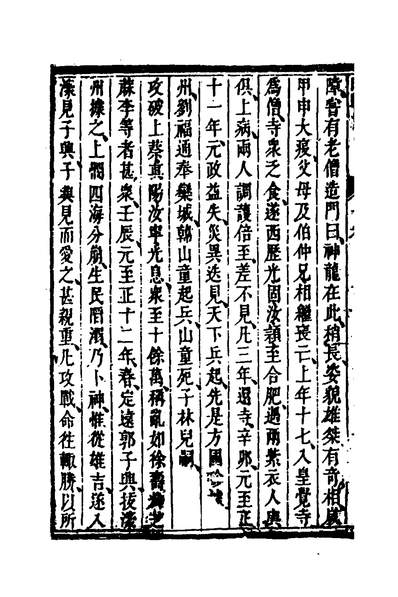 隣舍有老僧造門曰神龍在此稍長姿貌雄桀有奇相歲
甲申大疫父母及伯仲兄相繼喪亡上年十七入皇覺寺
爲僧寺衆乏食遂西歷光固汝潁至合肥遇兩紫衣人與
俱上病兩人調護倍至差不見凡三年還寺辛卯元至正
十一年元政益失災異迭見天下兵起先是方國珍
州劉福通奉欒城韓山童起兵山童死子林兒嗣
攻破上蔡眞陽汝寧光息衆至十餘萬稱亂如徐壽輝芝
蔴李等者甚衆壬辰元至正十二年春定遠郭子興拔濠
州據之上憫四海分崩生民罔濱乃卜神惟從雄吉遂入
濠見子興子興見而愛之甚親重凡攻戰命往輒勝以所